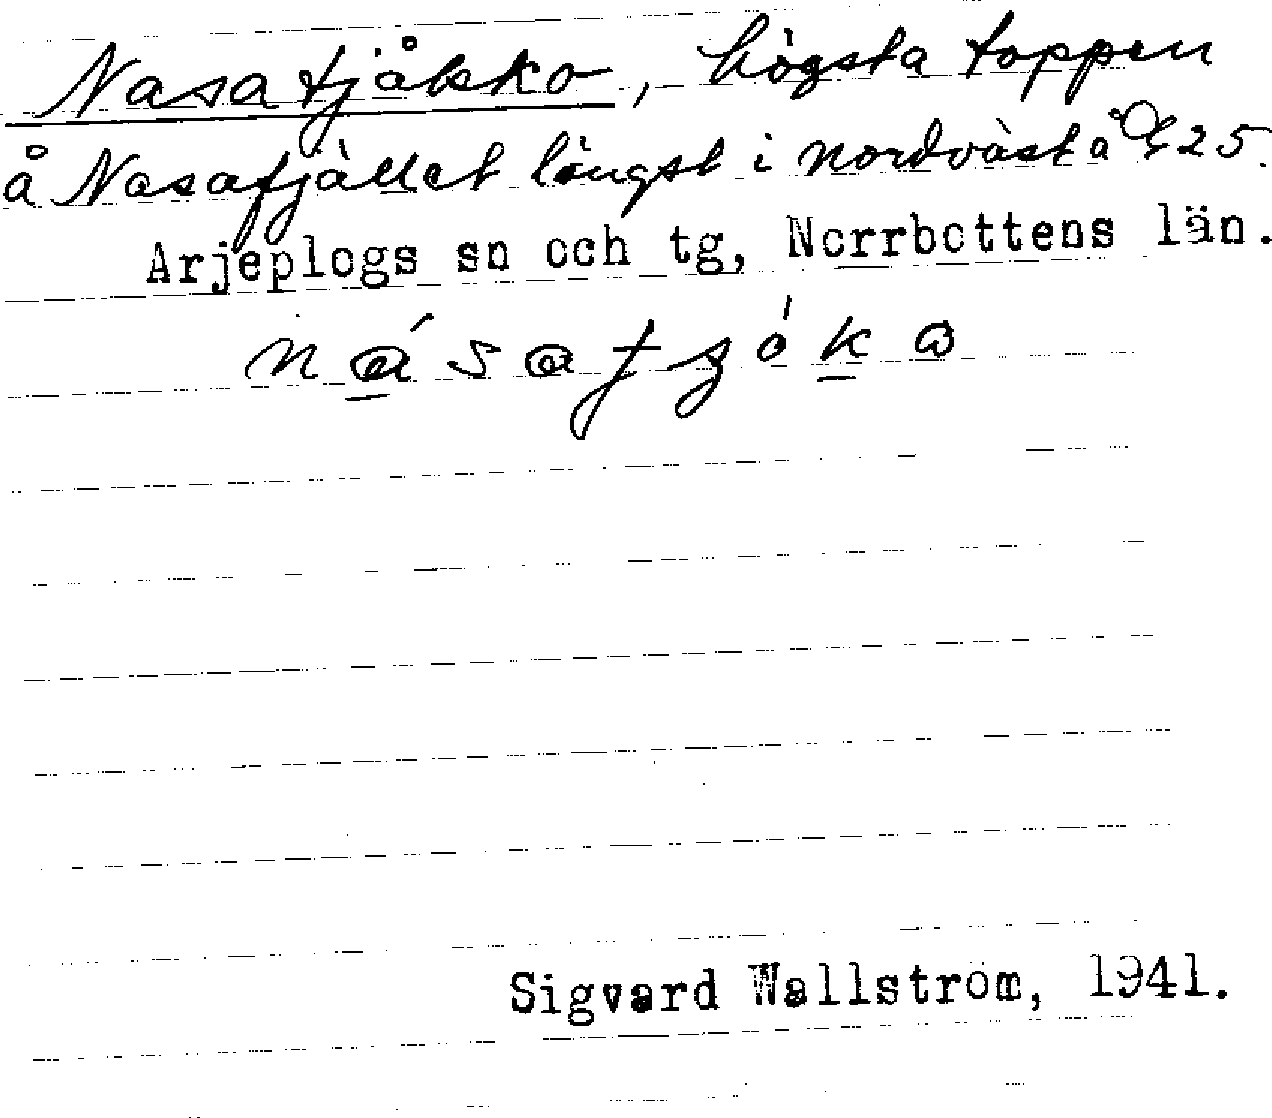 Nasa tjåkko, högsta toppen
å Nasafjället längst i nordväst å G 25.
Arjeplogs sn och tg, Norrbottens län.
Sigvard Wallström, 1941.